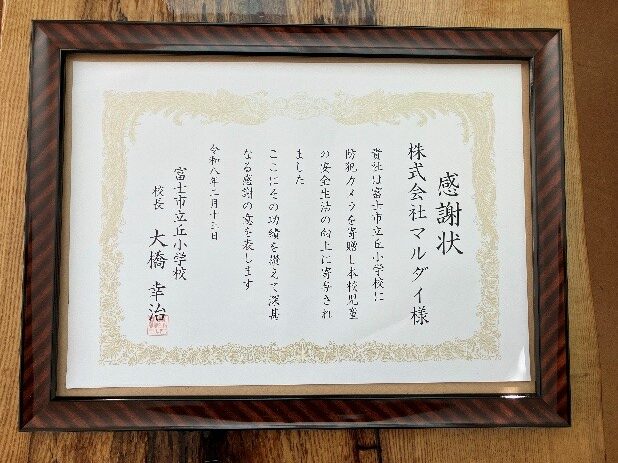 感謝状
株式会社マルダイ様
貴社は富士市立丘小学校に
防犯カメラを寄贈し本校児童
の安全生活の向上に寄与され
ました
ここにその功績を讃えて深甚
なる感謝の意を表します
令和八年二月十三日
富士市立丘小学校
校長 大橋幸治